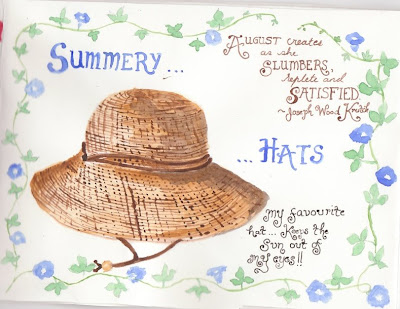 SUMMERY ...
AUGUST creates
as she
SLUMBERS,
replete and
SATISFIED
~Joseph Wood Krutch
... HATS
my favourite
hat ... Keeps the
sun out of
my eyes!!